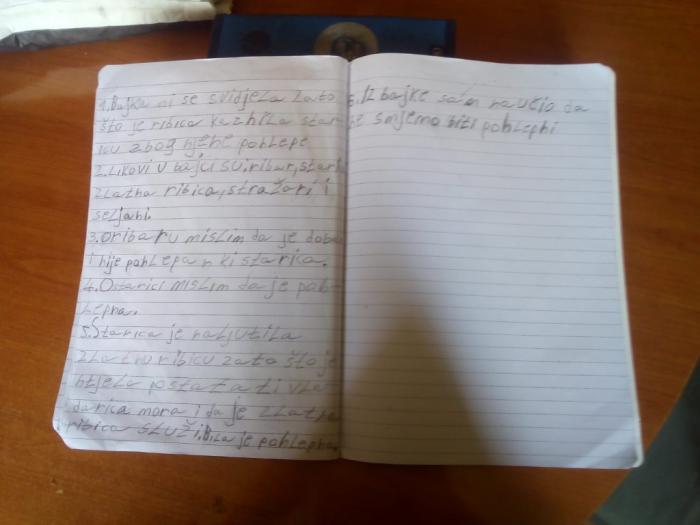 1. Bajka mi se svidjela zato
što je ribica kaznila star-
icu zbog njene pohlepe
2. Likovi u bajci su: ribar, stari
zlatna ribica, stražari i
seljani.
3. O ribaru mislim da je dobar
i nije pohlepan ki starica.
4. O starici mislim da je poh-
lepna.
5. Starica je naljutila
zlatnu ribicu zato što je
htjela postatati vla
darica mora i da je zlatna
ribica služi. Bila je pohlepna.
6. Iz bajke sam naučio da
ne smjemo biti pohlepni